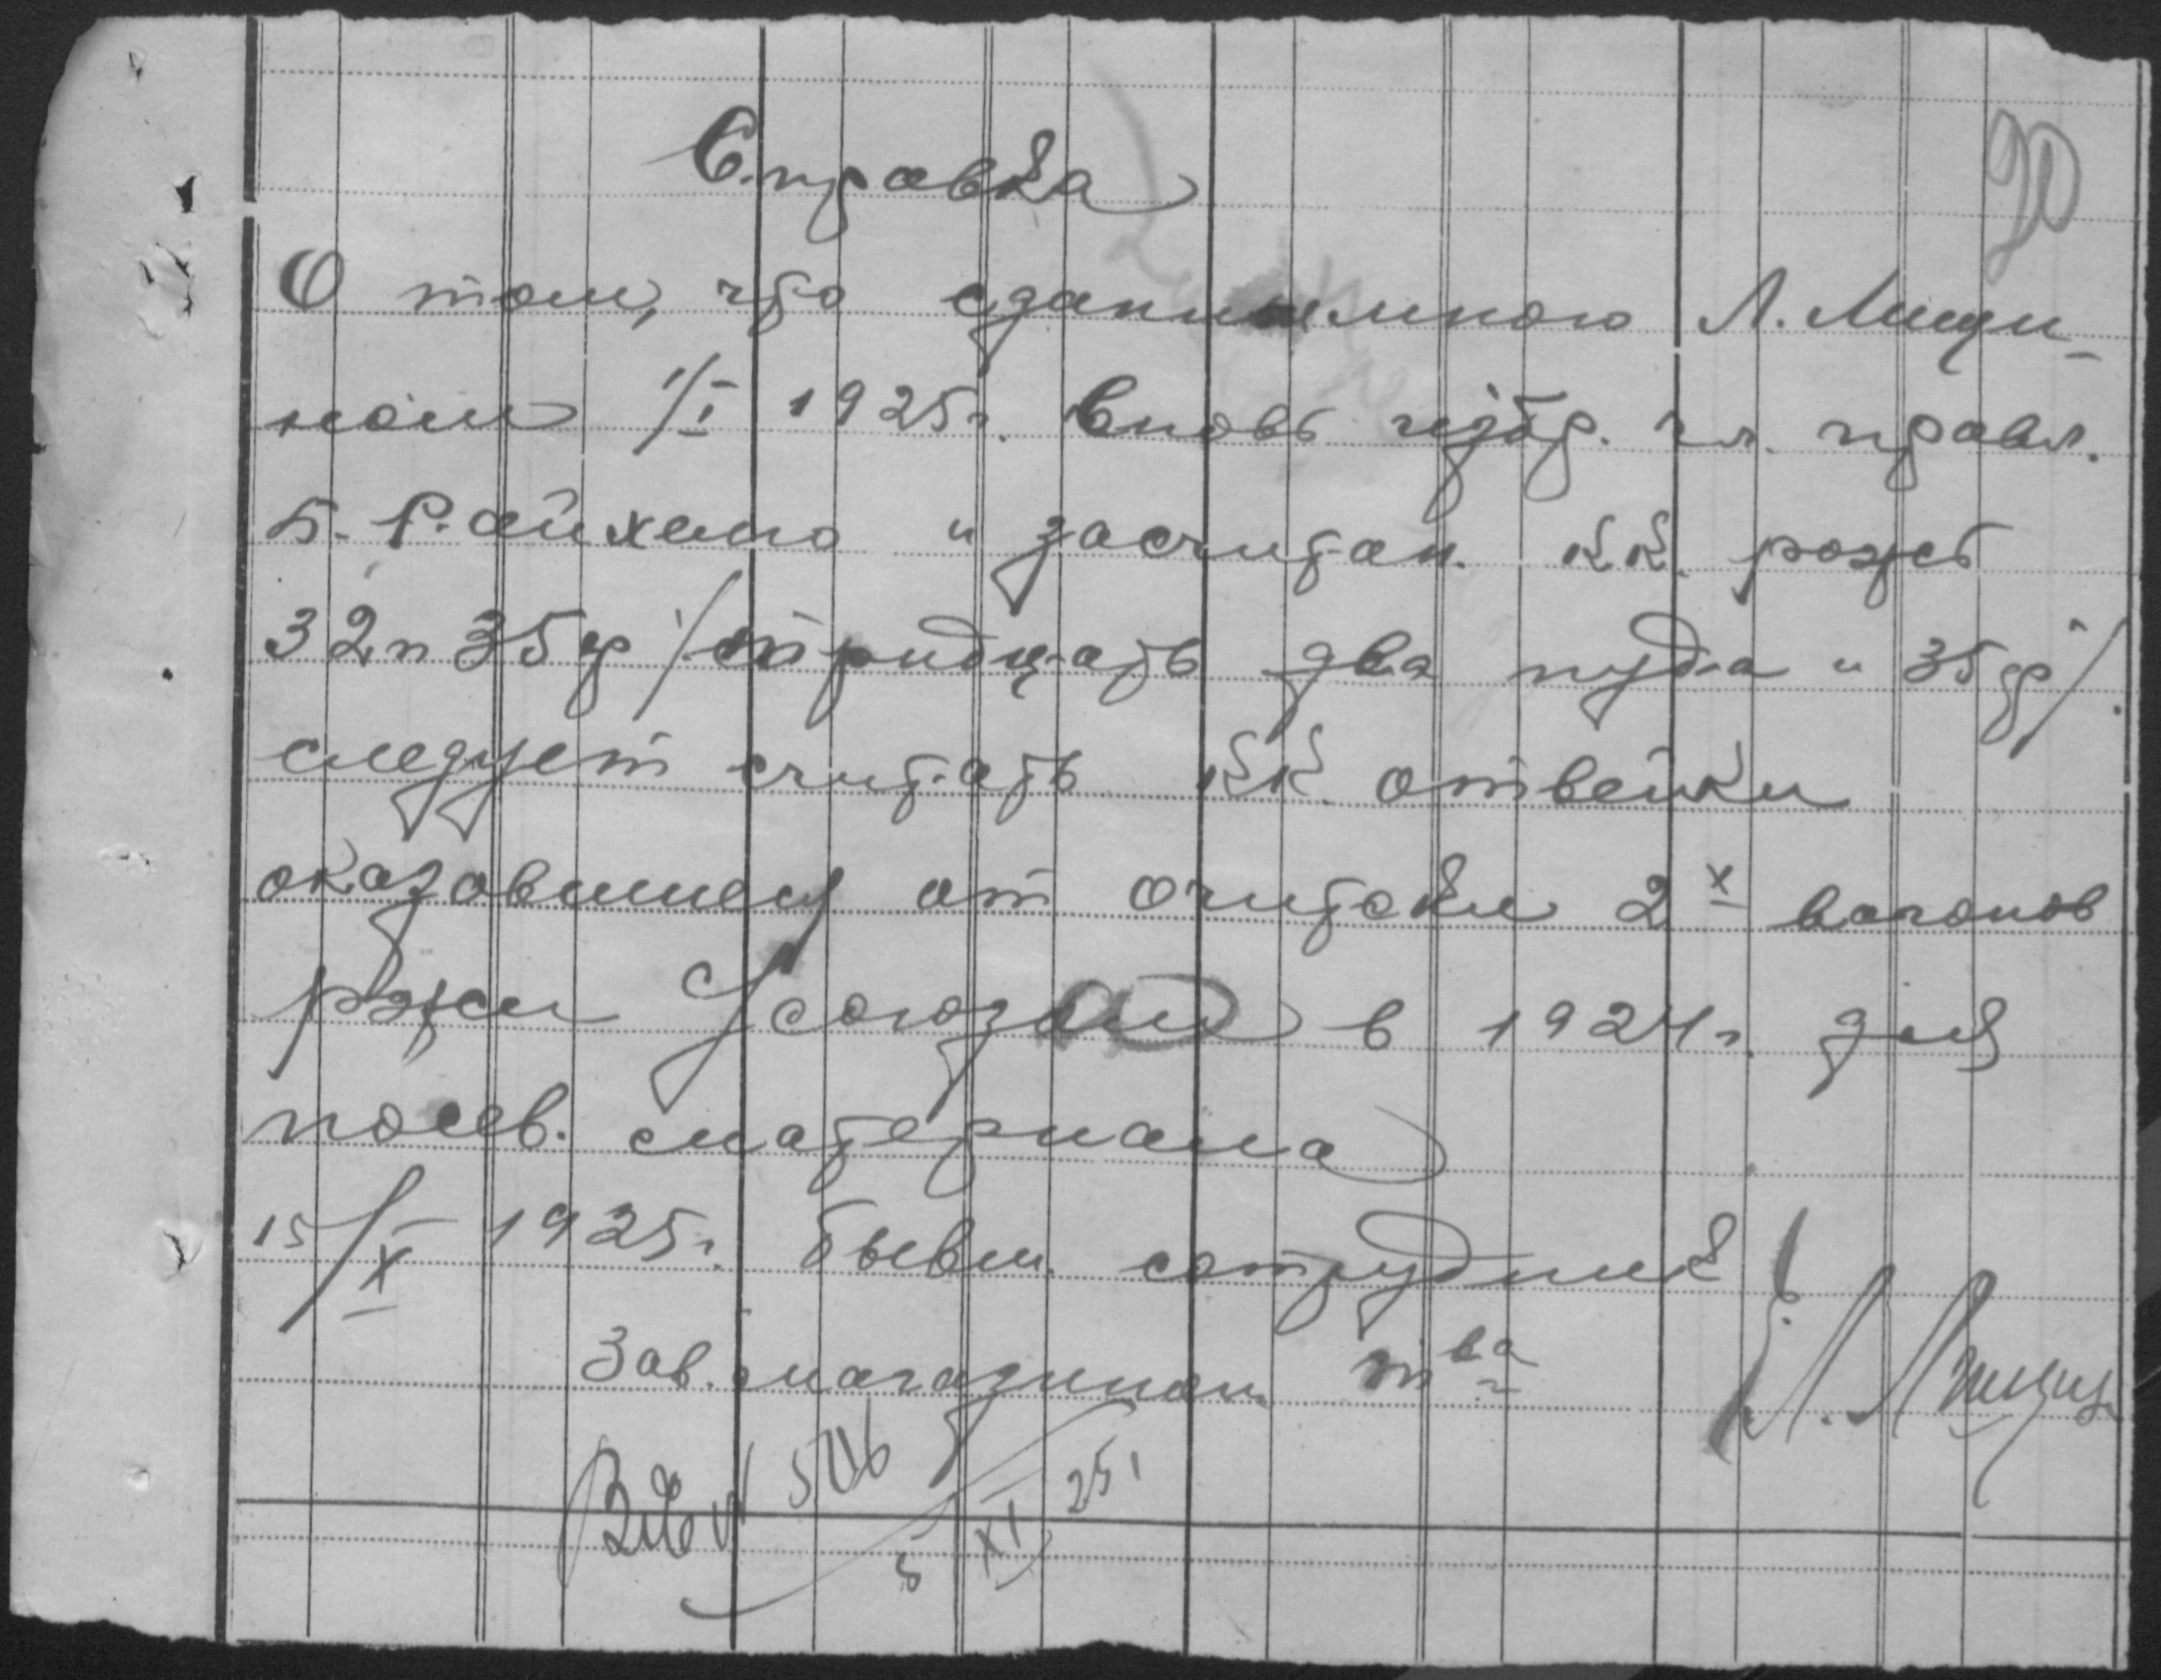 Справка
90
О том, что сданные мною Л. Лищи-
ном 1/I 1925г. вновь избр. чл. правл.
Б. Райхейм и засчитан. КК. рожь
32п 35ф /тридцать два пуда и 35ф/.
следует считать КК отвейки
оказавшиеся от очистки 2х вагонов
ржи Усоюзом в 1924г. для
посев. материала
15/X 1925г. бывш. сотрудник
Зав. магазином т-ва
Л. Лищин
506 5/XI 25г